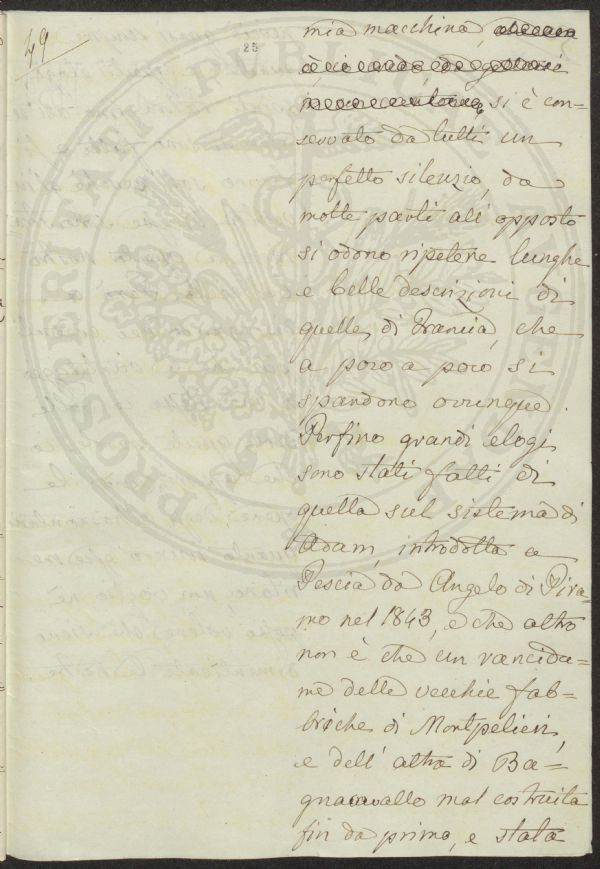 49
25
mia macchina,
si è con=
servato da tutti un
perfetto silenzio, da
molte parti all' opposto
si odono ripetere lunghe
e belle descrizioni di
quelle di Francia, che
a poco a poco si
spandono ovvunque.
Perfino grandi elogi
sono stati fatti di
quella sul sistema di
Adam, introdotta a
Pescia da Angelo di Pira=
mo nel 1843, e che altro
non è che un rancida=
me delle vecchie fab=
briche di Montpelieri,
e dell' altra di Ba=
gnacavallo mal costruita
fin da prima, e stata
PROSPERITATI PUBLICAE AUGENDAE